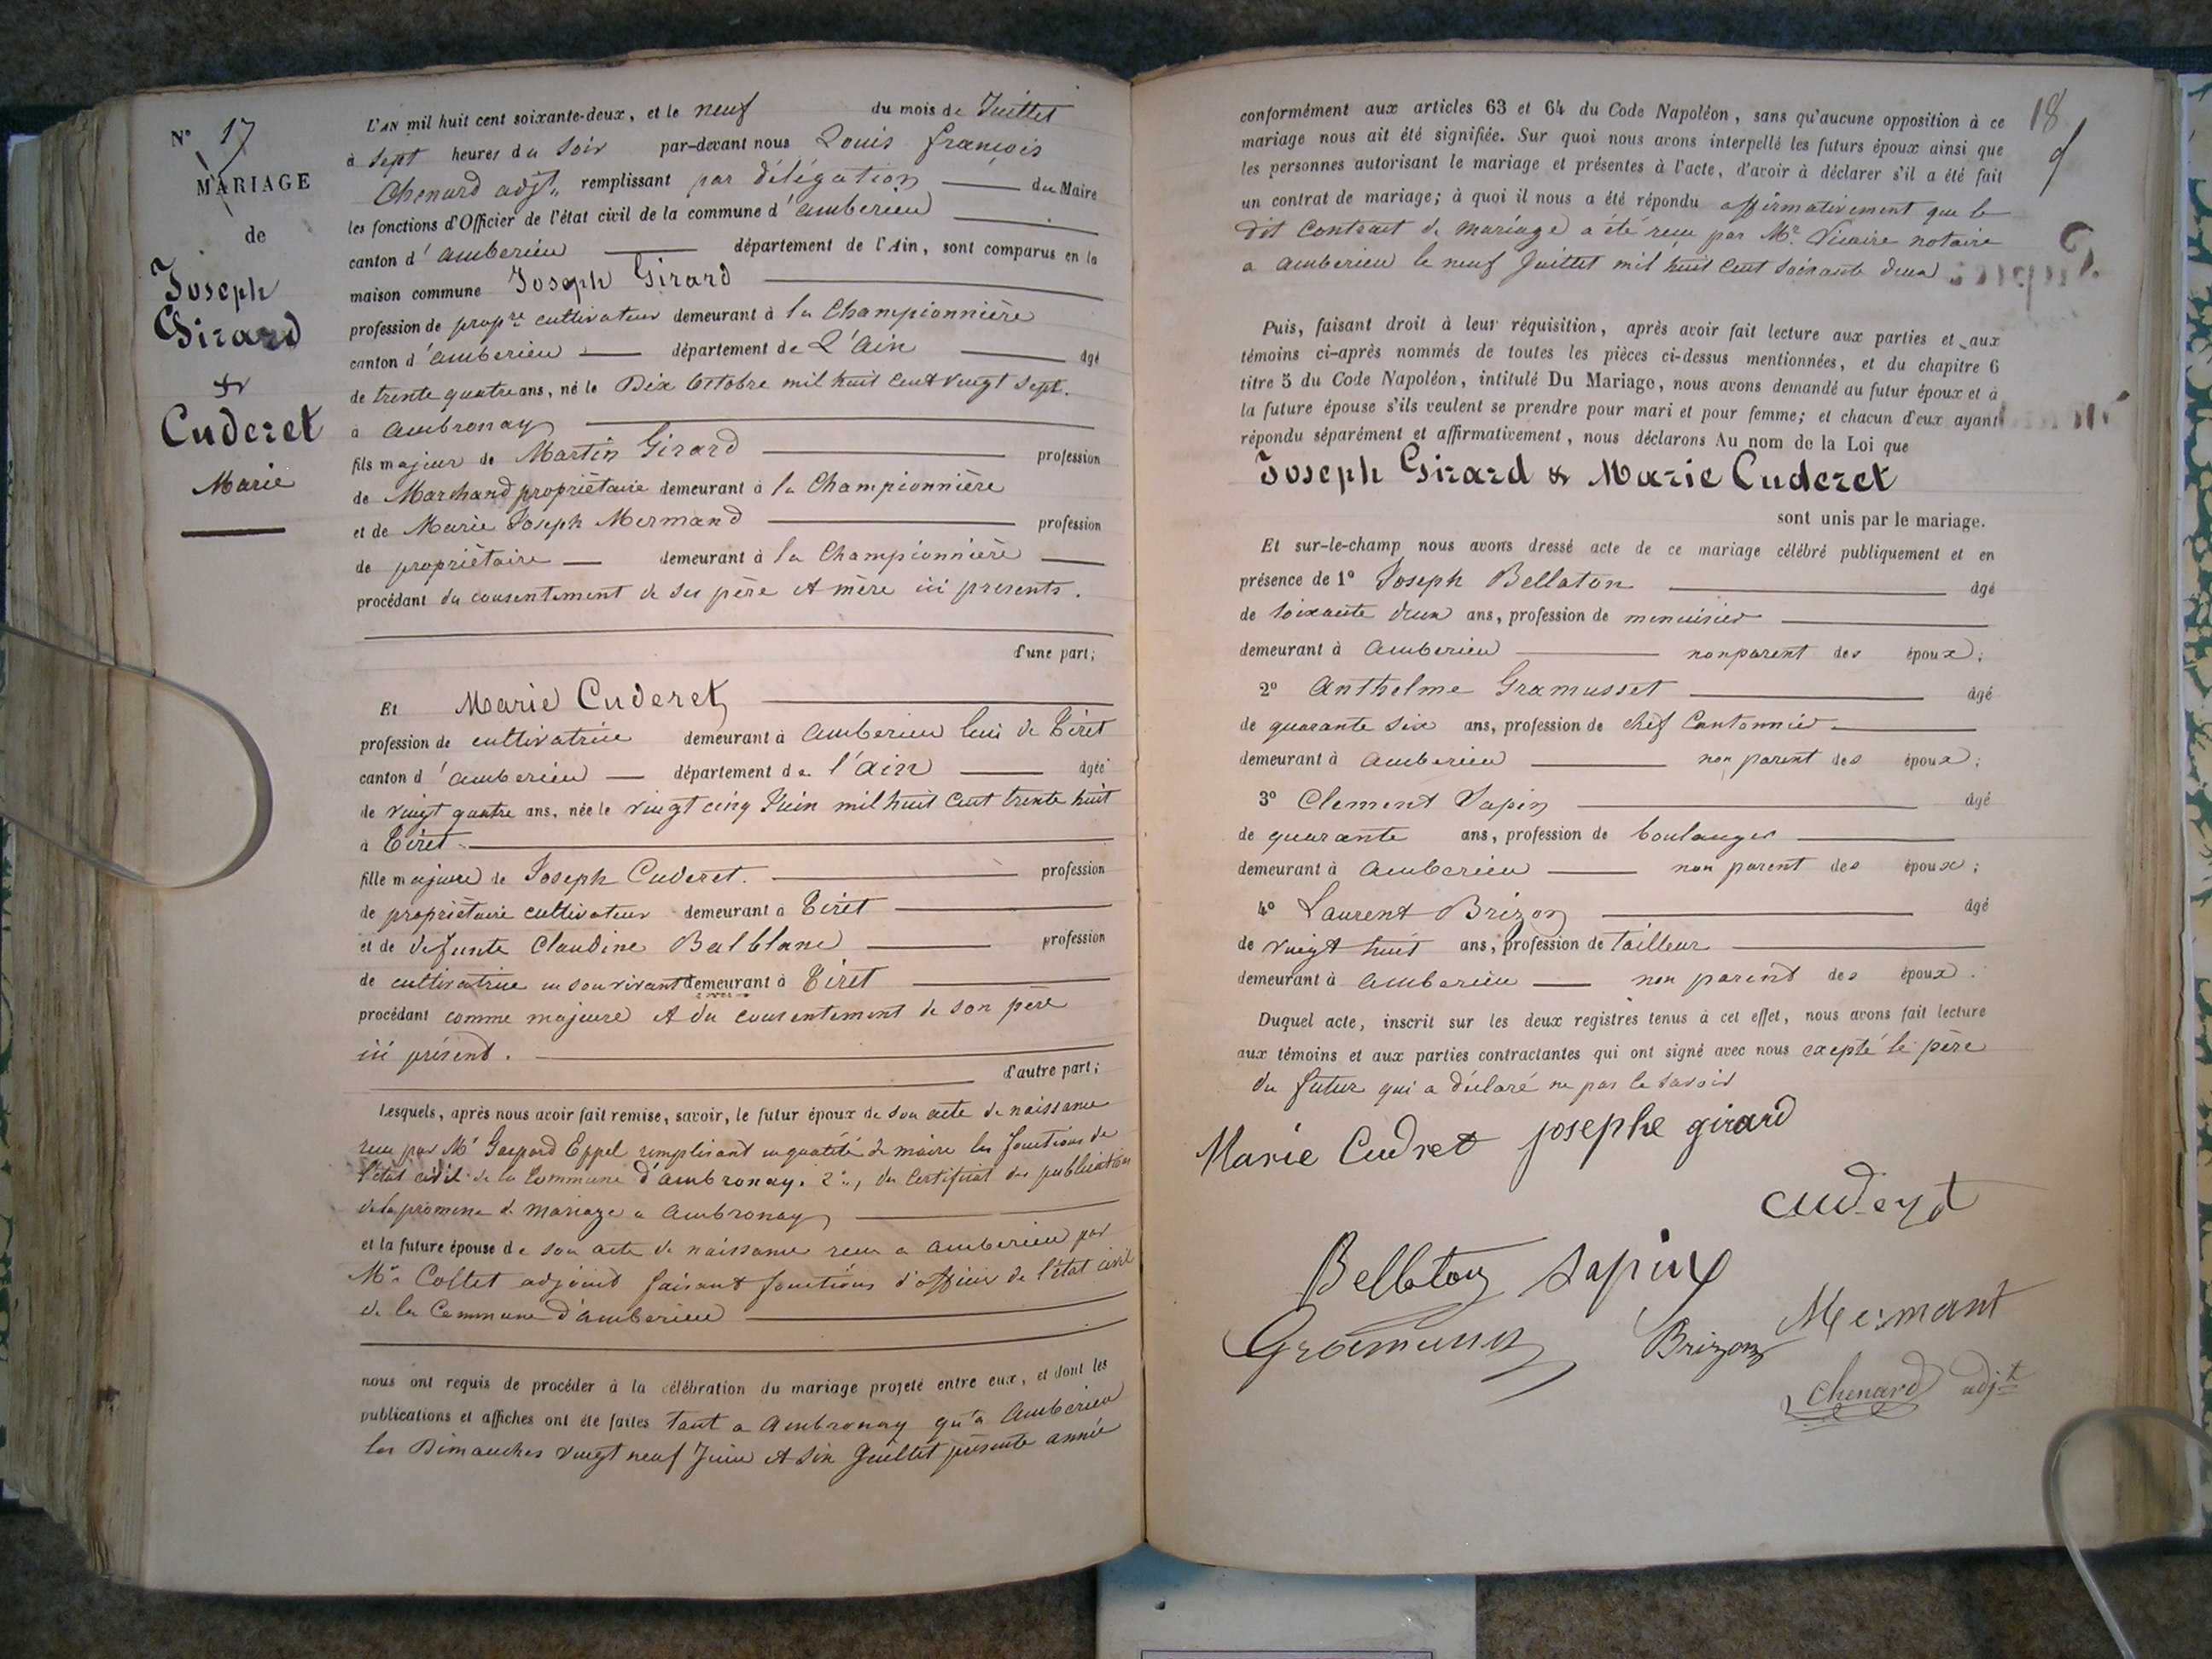 N° 17
MARIAGE
de
Joseph
Girard
&
Cuderet
Marie
L'AN mil huit cent soixante-deux, et le neuf du mois de Juillet
à sept heures du soir par-devant nous Louis françois
Chenard adjt, remplissant par délégation du Maire
les fonctions d'Officier de l'état civil de la commune d'amberieu
canton d'amberieu département de l'Ain, sont comparus en la
maison commune Joseph Girard
profession de propre cultivateur demeurant à la Championnière
canton d'amberieu département de L'ain âgé
de trente quatre ans, né le Dix Octobre mil huit cent vingt sept.
à ambronay
fils majeur de Martin Girard profession
de Marchand propriètaire demeurant à la Championnière
et de Marie Joseph Mermand profession
de propriètaire demeurant à la Championnière
procédant du consentement de ses père et mère ici presents.
d'une part;
Et Marie Cuderet
profession de cultivatrice demeurant à amberieu lieu de Tiret
canton d'amberieu département de l'ain âgée
de vingt quatre ans, née le vingt cinq Juin mil huit cent trente huit
à Tiret
fille majeure de Joseph Cuderet. profession
de propriètaire cultivateur demeurant à Tiret
et de defunte Claudine Balblanc profession
de cultivatrice en son vivant demeurant à Tiret
procédant comme majeure et du consentement de son père
ici présent.
d'autre part;
Lesquels, après nous avoir fait remise, savoir, le futur époux de son acte de naissance
recu par Mr Gaspard Eppel remplissant en qualité de maire les fonctions de
l'état civil de la Commune d'ambronay. 2°, du certificat des publications
de la promesse de mariage a ambronay
et la future épouse de son acte de naissance recu a amberieu par
Mr Collet adjoint faisant fonctions d'officier de l'état civil
de la Commune d'amberieu
nous ont requis de procéder à la célébration du mariage projeté entre eux, et dont les
publications et affiches ont été faites tant a ambronay qu'a amberieu
les Dimanches vingt neuf Juin et six Juillet présente année
18
conformément aux articles 63 et 64 du Code Napoléon, sans qu'aucune opposition à ce
mariage nous ait été signifiée. Sur quoi nous avons interpellé les futurs époux ainsi que
les personnes autorisant le mariage et présentes à l'acte, d'avoir à déclarer s'il a été fait
un contrat de mariage; à quoi il nous a été répondu affirmativement que le
dit contrat de mariage a été recu par Mr Vicaire notaire
a amberieu le neuf Juillet mil huit cent soixante deux
Puis, faisant droit à leur réquisition, après avoir fait lecture aux parties et aux
témoins ci-après nommés de toutes les pièces ci-dessus mentionnées, et du chapitre 6
titre 5 du Code Napoléon, intitulé Du Mariage, nous avons demandé au futur époux et à
la future épouse s'ils veulent se prendre pour mari et pour femme; et chacun d'eux ayant
répondu séparément et affirmativement, nous déclarons Au nom de la Loi que
Joseph Girard & Marie Cuderet
sont unis par le mariage.
Et sur-le-champ nous avons dressé acte de ce mariage célébré publiquement et en
présence de 1° Joseph Bellaton âgé
de soixante deux ans, profession de menuisier
demeurant à amberieu non parent des époux;
2° Anthelme Gramusset âgé
de quarante six ans, profession de chef Cantonnier
demeurant à amberieu non parent des époux;
3° Clement Sapin âgé
de quarante ans, profession de boulanger
demeurant à amberieu non parent des époux;
4° Laurent Brizon âgé
de vingt huit ans, profession de Tailleur
demeurant à amberieu non parent des époux.
Duquel acte, inscrit sur les deux registres tenus à cet effet, nous avons fait lecture
aux témoins et aux parties contractantes qui ont signé avec nous excepté le père
du futur qui a déclaré ne pas le savoir
Marie Cudret josephe girard
cuderet
Bellaton Sapin
Mermant
Gramusset Brizon
Chenard adjt